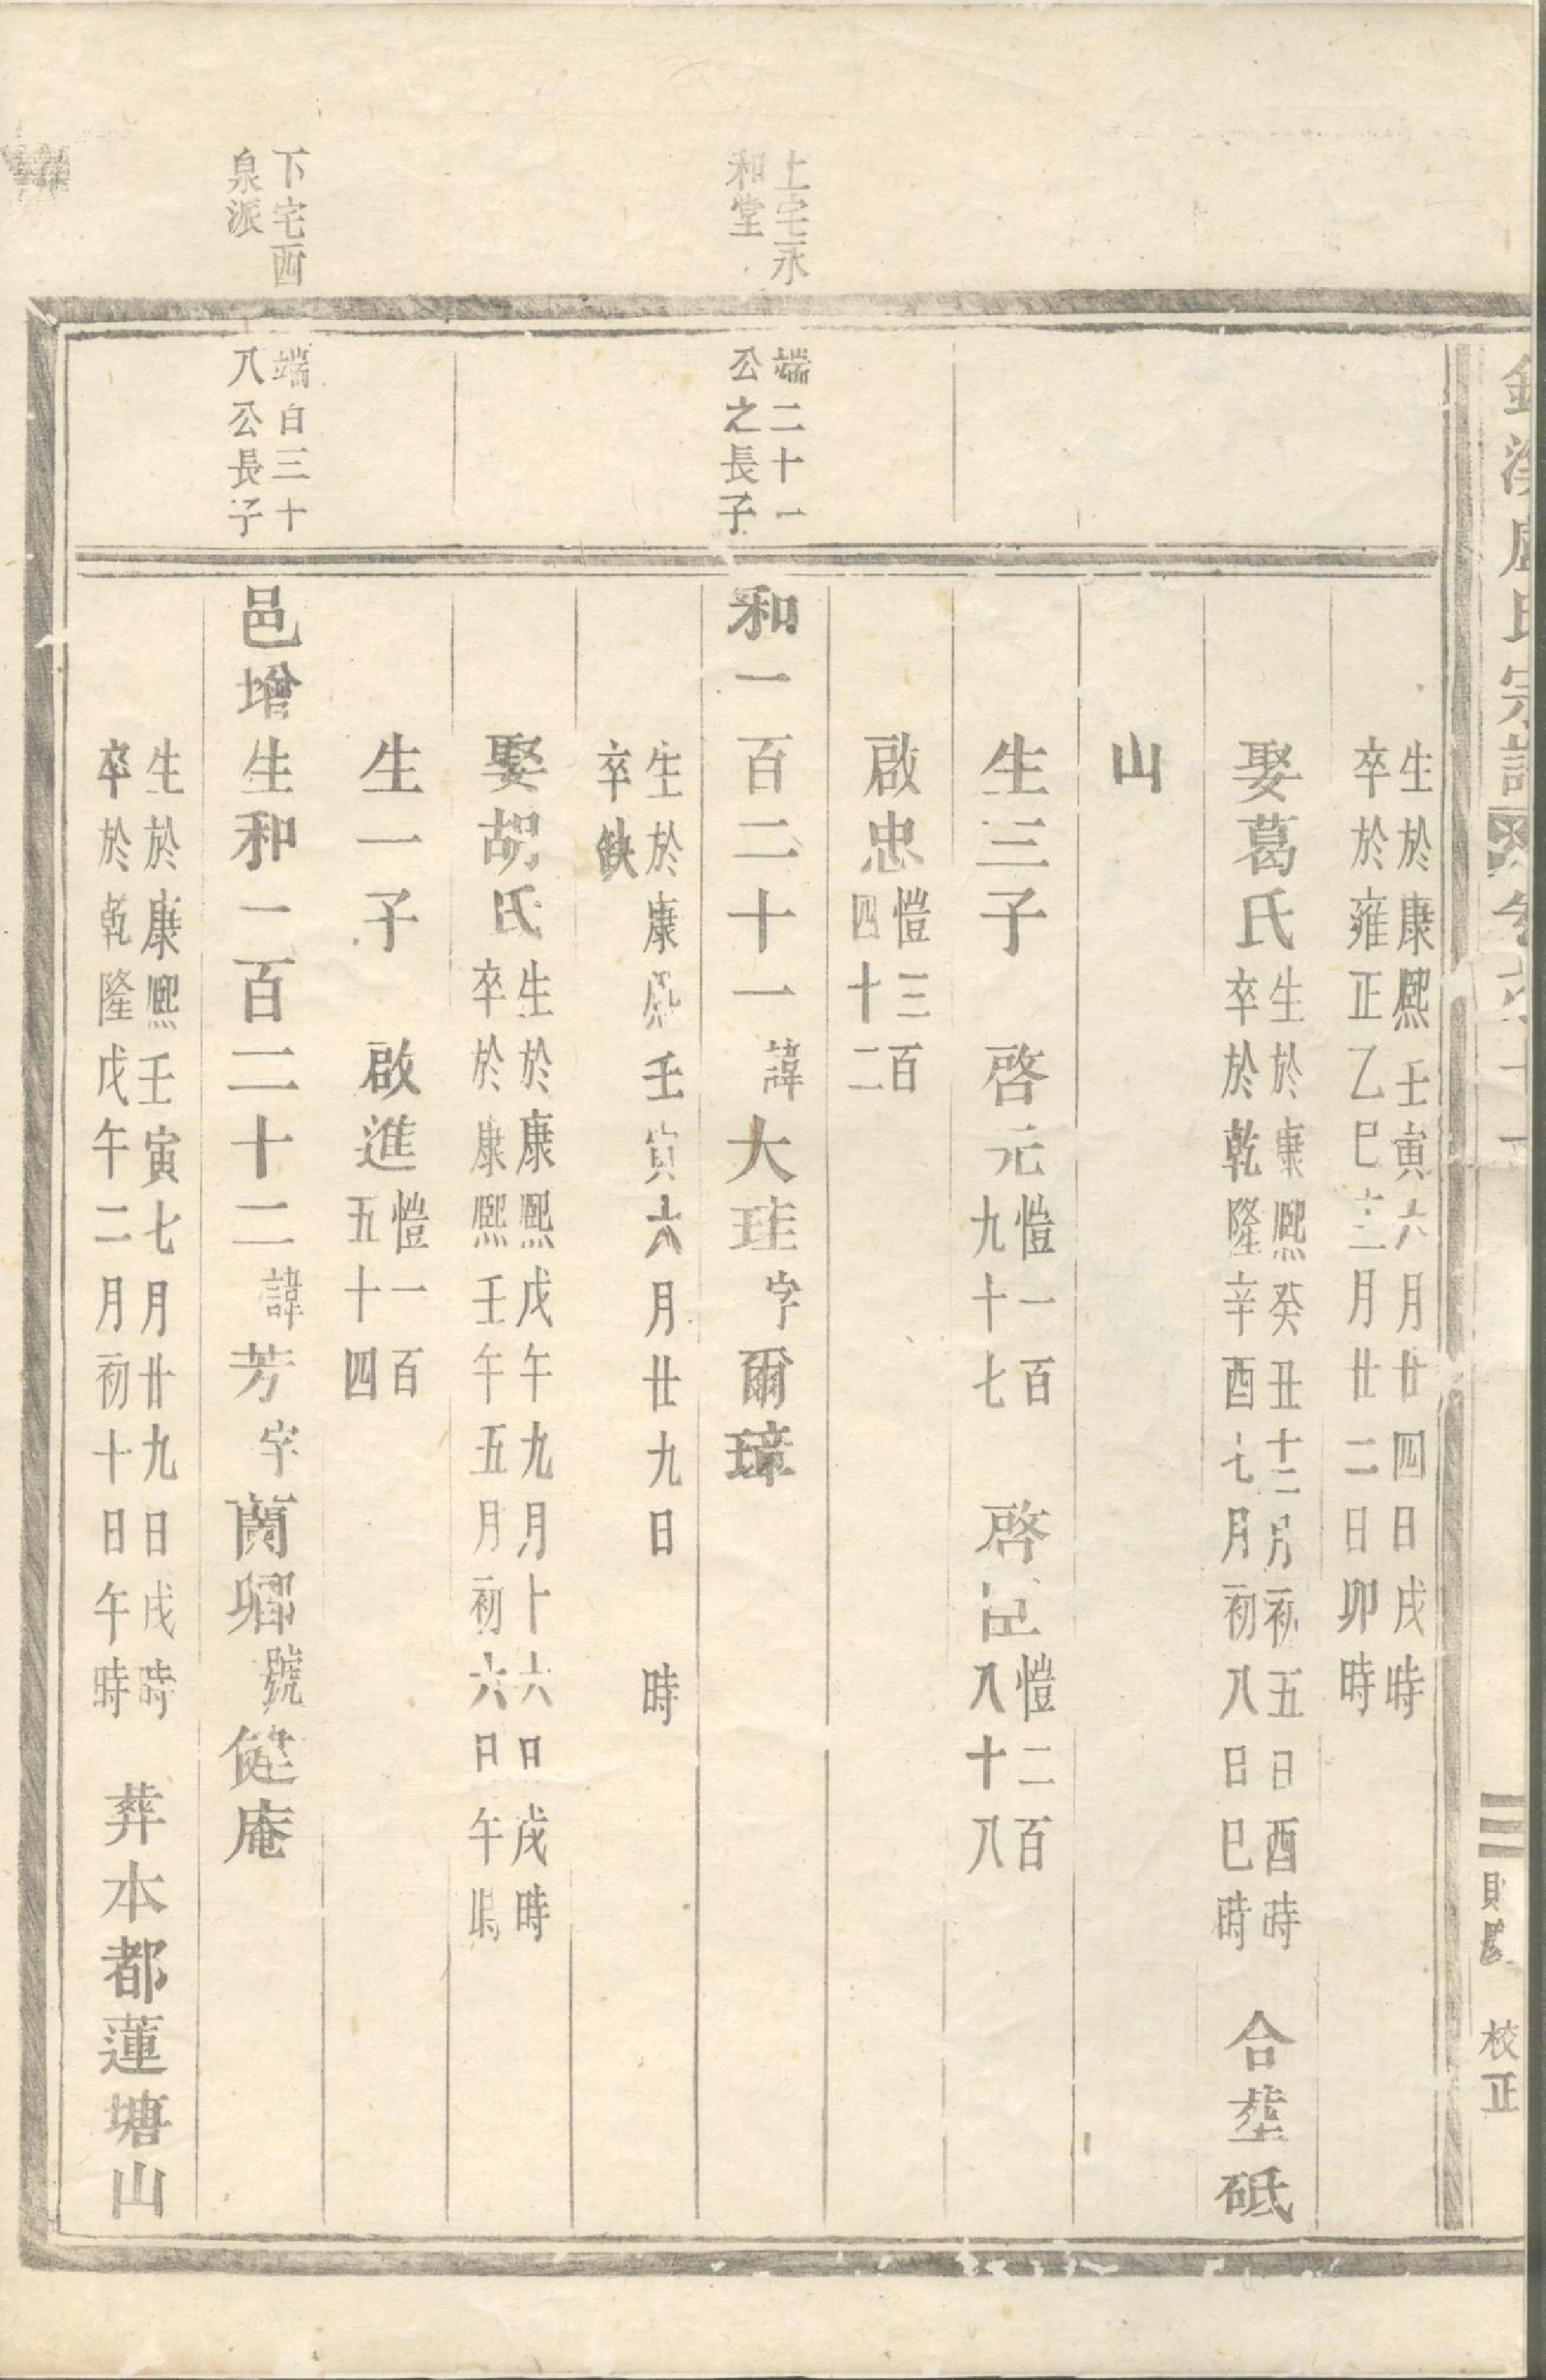 溪盧氏宗譜
校正
生於康熙壬寅六月廿四日戌時
卒於雍正乙巳十二月廿二日卯時
娶葛氏
生於康熙癸丑十二月初五日酉時
卒於乾隆辛酉七月初八日巳時
合塟砥
山
生三子 啓元
愷一百
九十七
啓
愷二百
八十八
啟忠
愷三百
四十二
上宅永
和堂
端二十一
公之長子
和一百二十一諱大珪字爾璋
生於康熙壬寅六月廿九日 時
卒缺
娶胡氏
生於康熙戊午九月十六日戌時
卒於康熙壬午五月初六日午時
生一子 啟進
愷一百
五十四
下宅西
泉派
端百三十
八公長子
邑增生和一百二十二諱芳字蘭墀號健庵
生於康熙壬寅七月廿九日戌時
卒於乾隆戊午二月初十日午時
葬本都蓮塘山